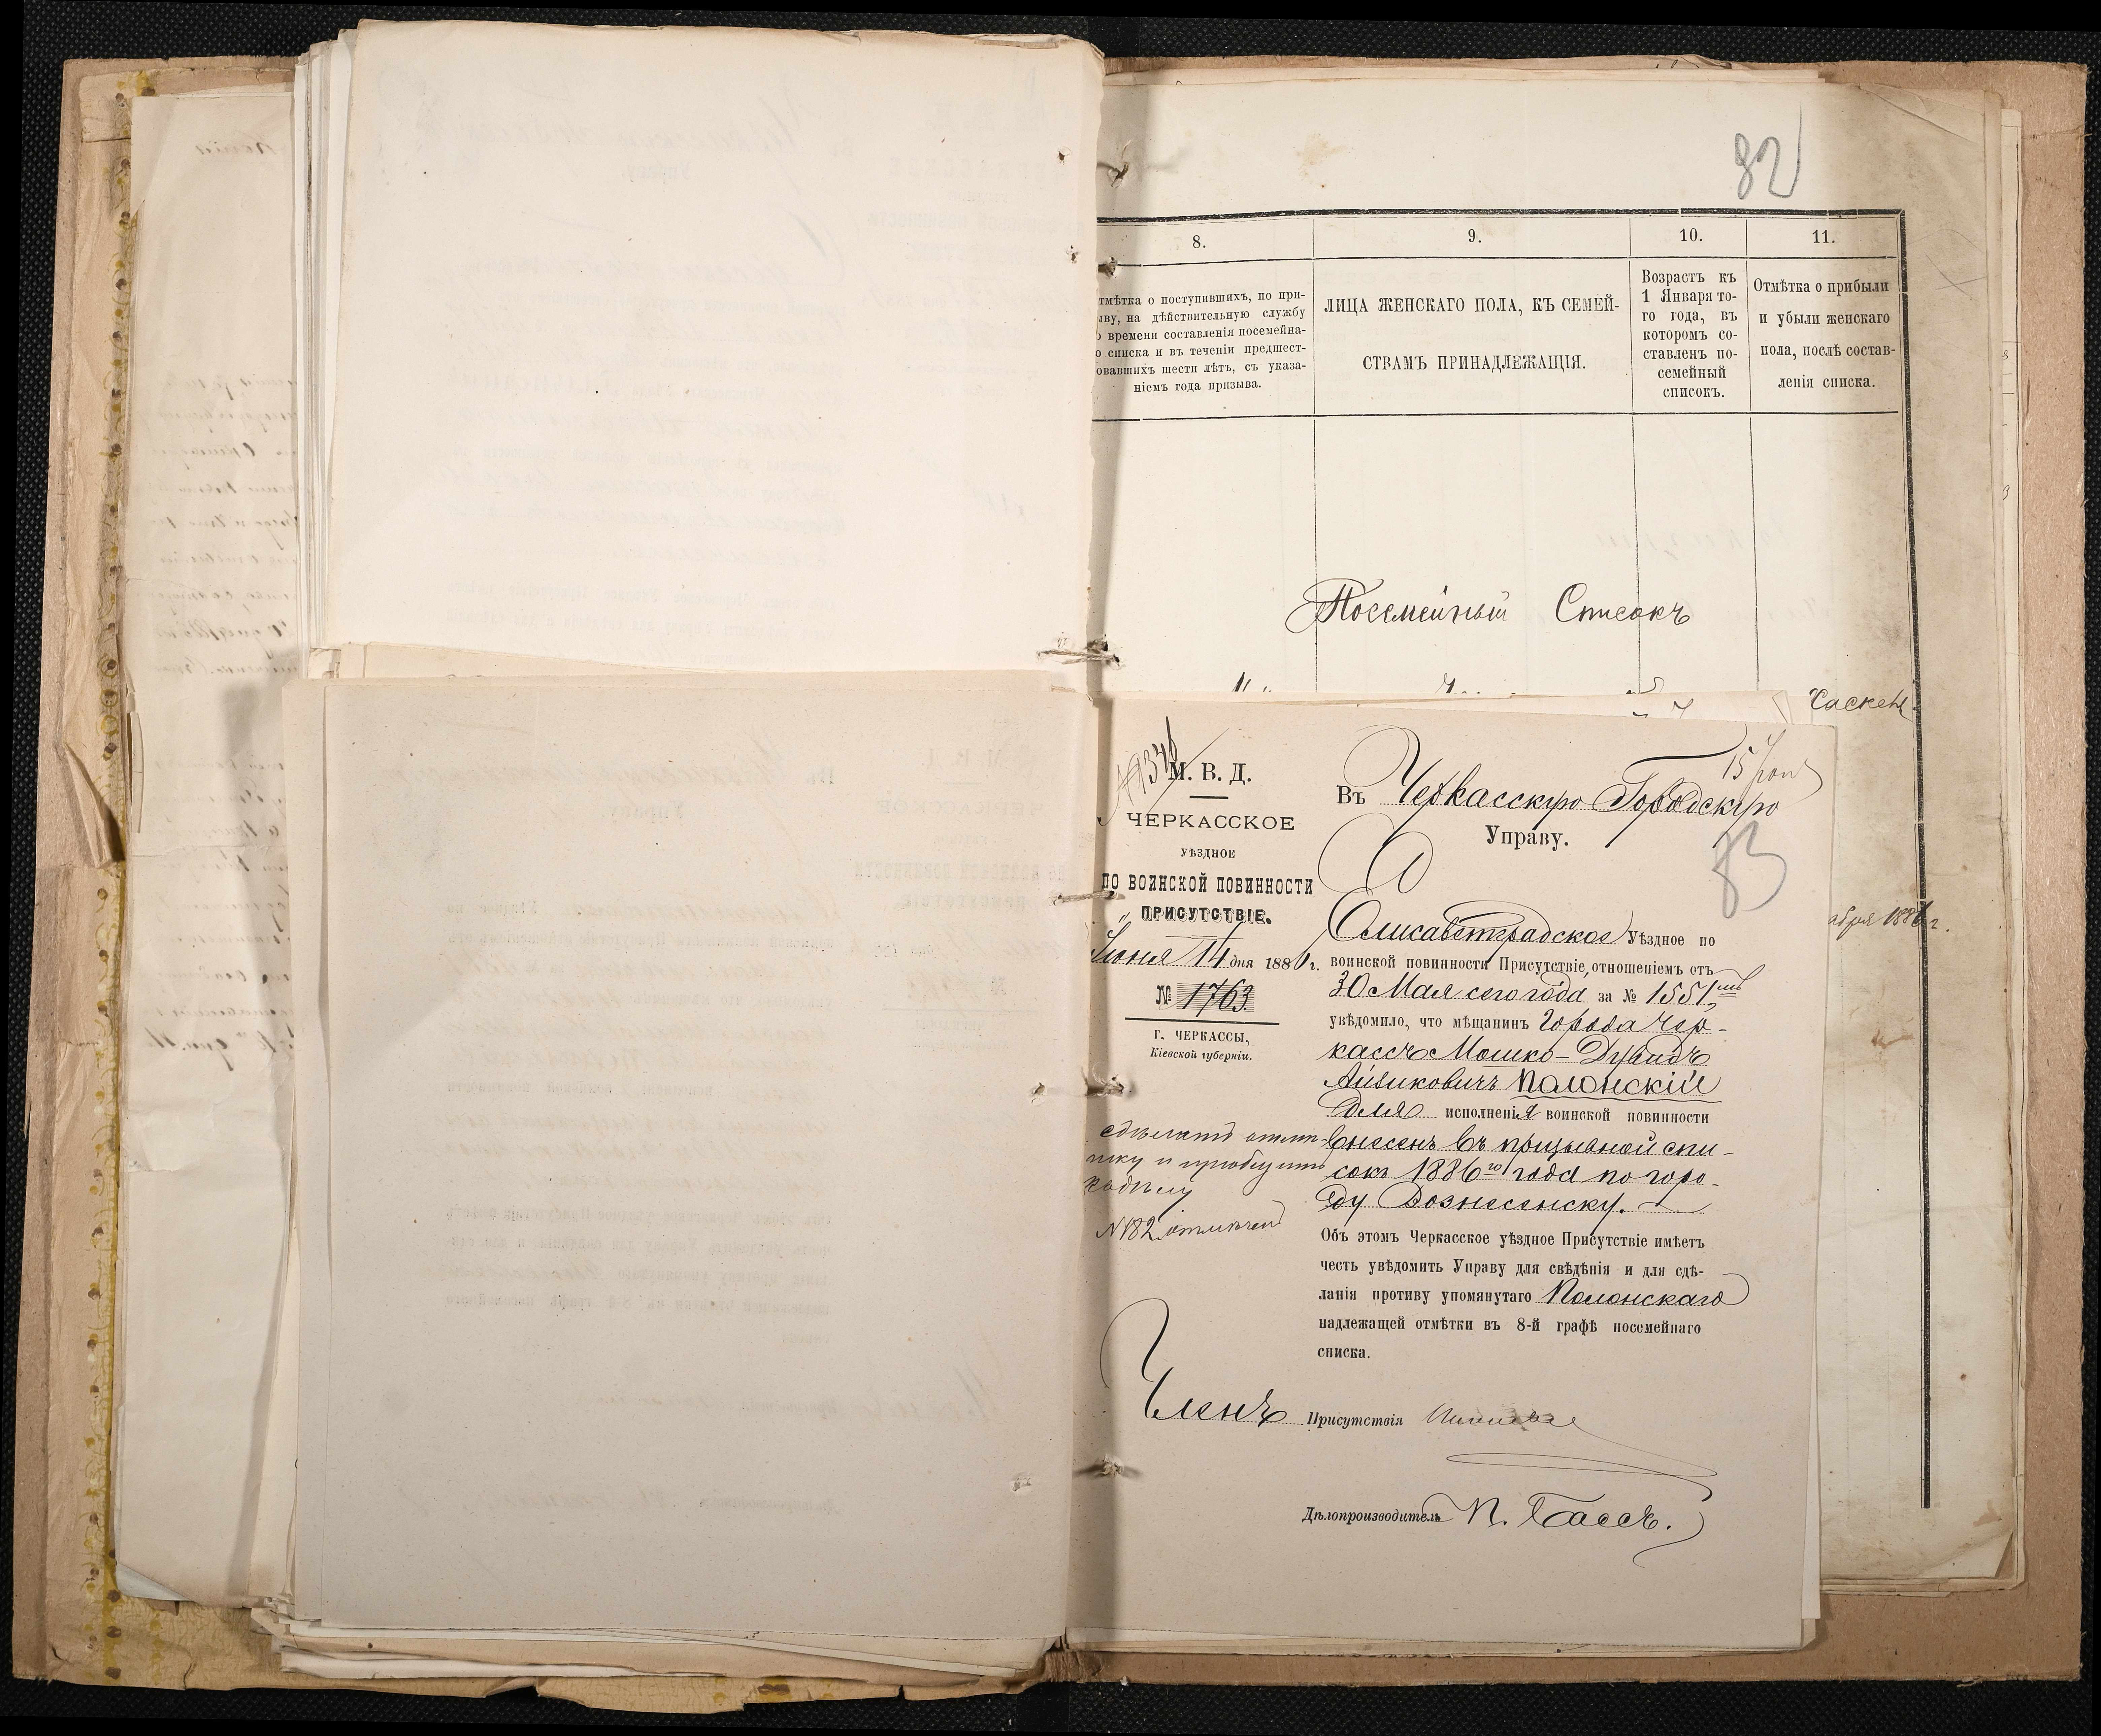 82
8.
9.
10.
11.
тмѣтка о поступившихъ, по при-
ыву, на дѣйствительную службу
о времени составленія посемейна-
о списка и въ теченіи предшест-
овавшихъ шести лѣтъ, съ указа-
ніемъ года призыва.
ЛИЦА ЖЕНСКАГО ПОЛА, КЪ СЕМЕЙ-
СТВАМЪ ПРИНАДЛЕЖАЩІЯ.
Возрастъ къ
1 Января то-
го года, въ
которомъ со-
ставленъ по-
семейный
списокъ.
Отмѣтка о прибыли
и убыли женскаго
пола, послѣ состав-
ленія списка.
Посемейный Списокъ
абря 1886 г.
М. В. Д.
ЧЕРКАССКОЕ
УѢЗДНОЕ
ПО ВОИНСКОЙ ПОВИННОСТИ
ПРИСУТСТВІЕ.
Іюня 14 дня 1886 г.
№ 1763.
Г. ЧЕРКАССЫ,
Кіевской губерніи.
сдѣлать отмѣт-
тку и пріобщить
къ дѣлу
№ 82 отмѣчено
15 Іюня
Въ Черкасскую Городскую
Управу.
83
Елисаветградское Уѣздное по
воинской повинности Присутствіе, отношеніемъ отъ
30 Мая сего года за № 1551мъ
увѣдомило, что мѣщанинъ города Чер-
кассъ Мошко-Дувидъ
Айзиковичъ Полонскій
для исполненія воинской повинности
внесенъ въ призывной спи-
сокъ 1886го года по горо-
ду Вознесенску.
Объ этомъ Черкасское уѣздное Присутствіе имѣетъ
честь увѣдомить Управу для свѣдѣнія и для сдѣ-
ланія противу упомянутаго Полонскаго
надлежащей отмѣтки въ 8-й графѣ посемейнаго
списка.
Членъ Присутствія
Дѣлопроизводитель П. Бассъ.